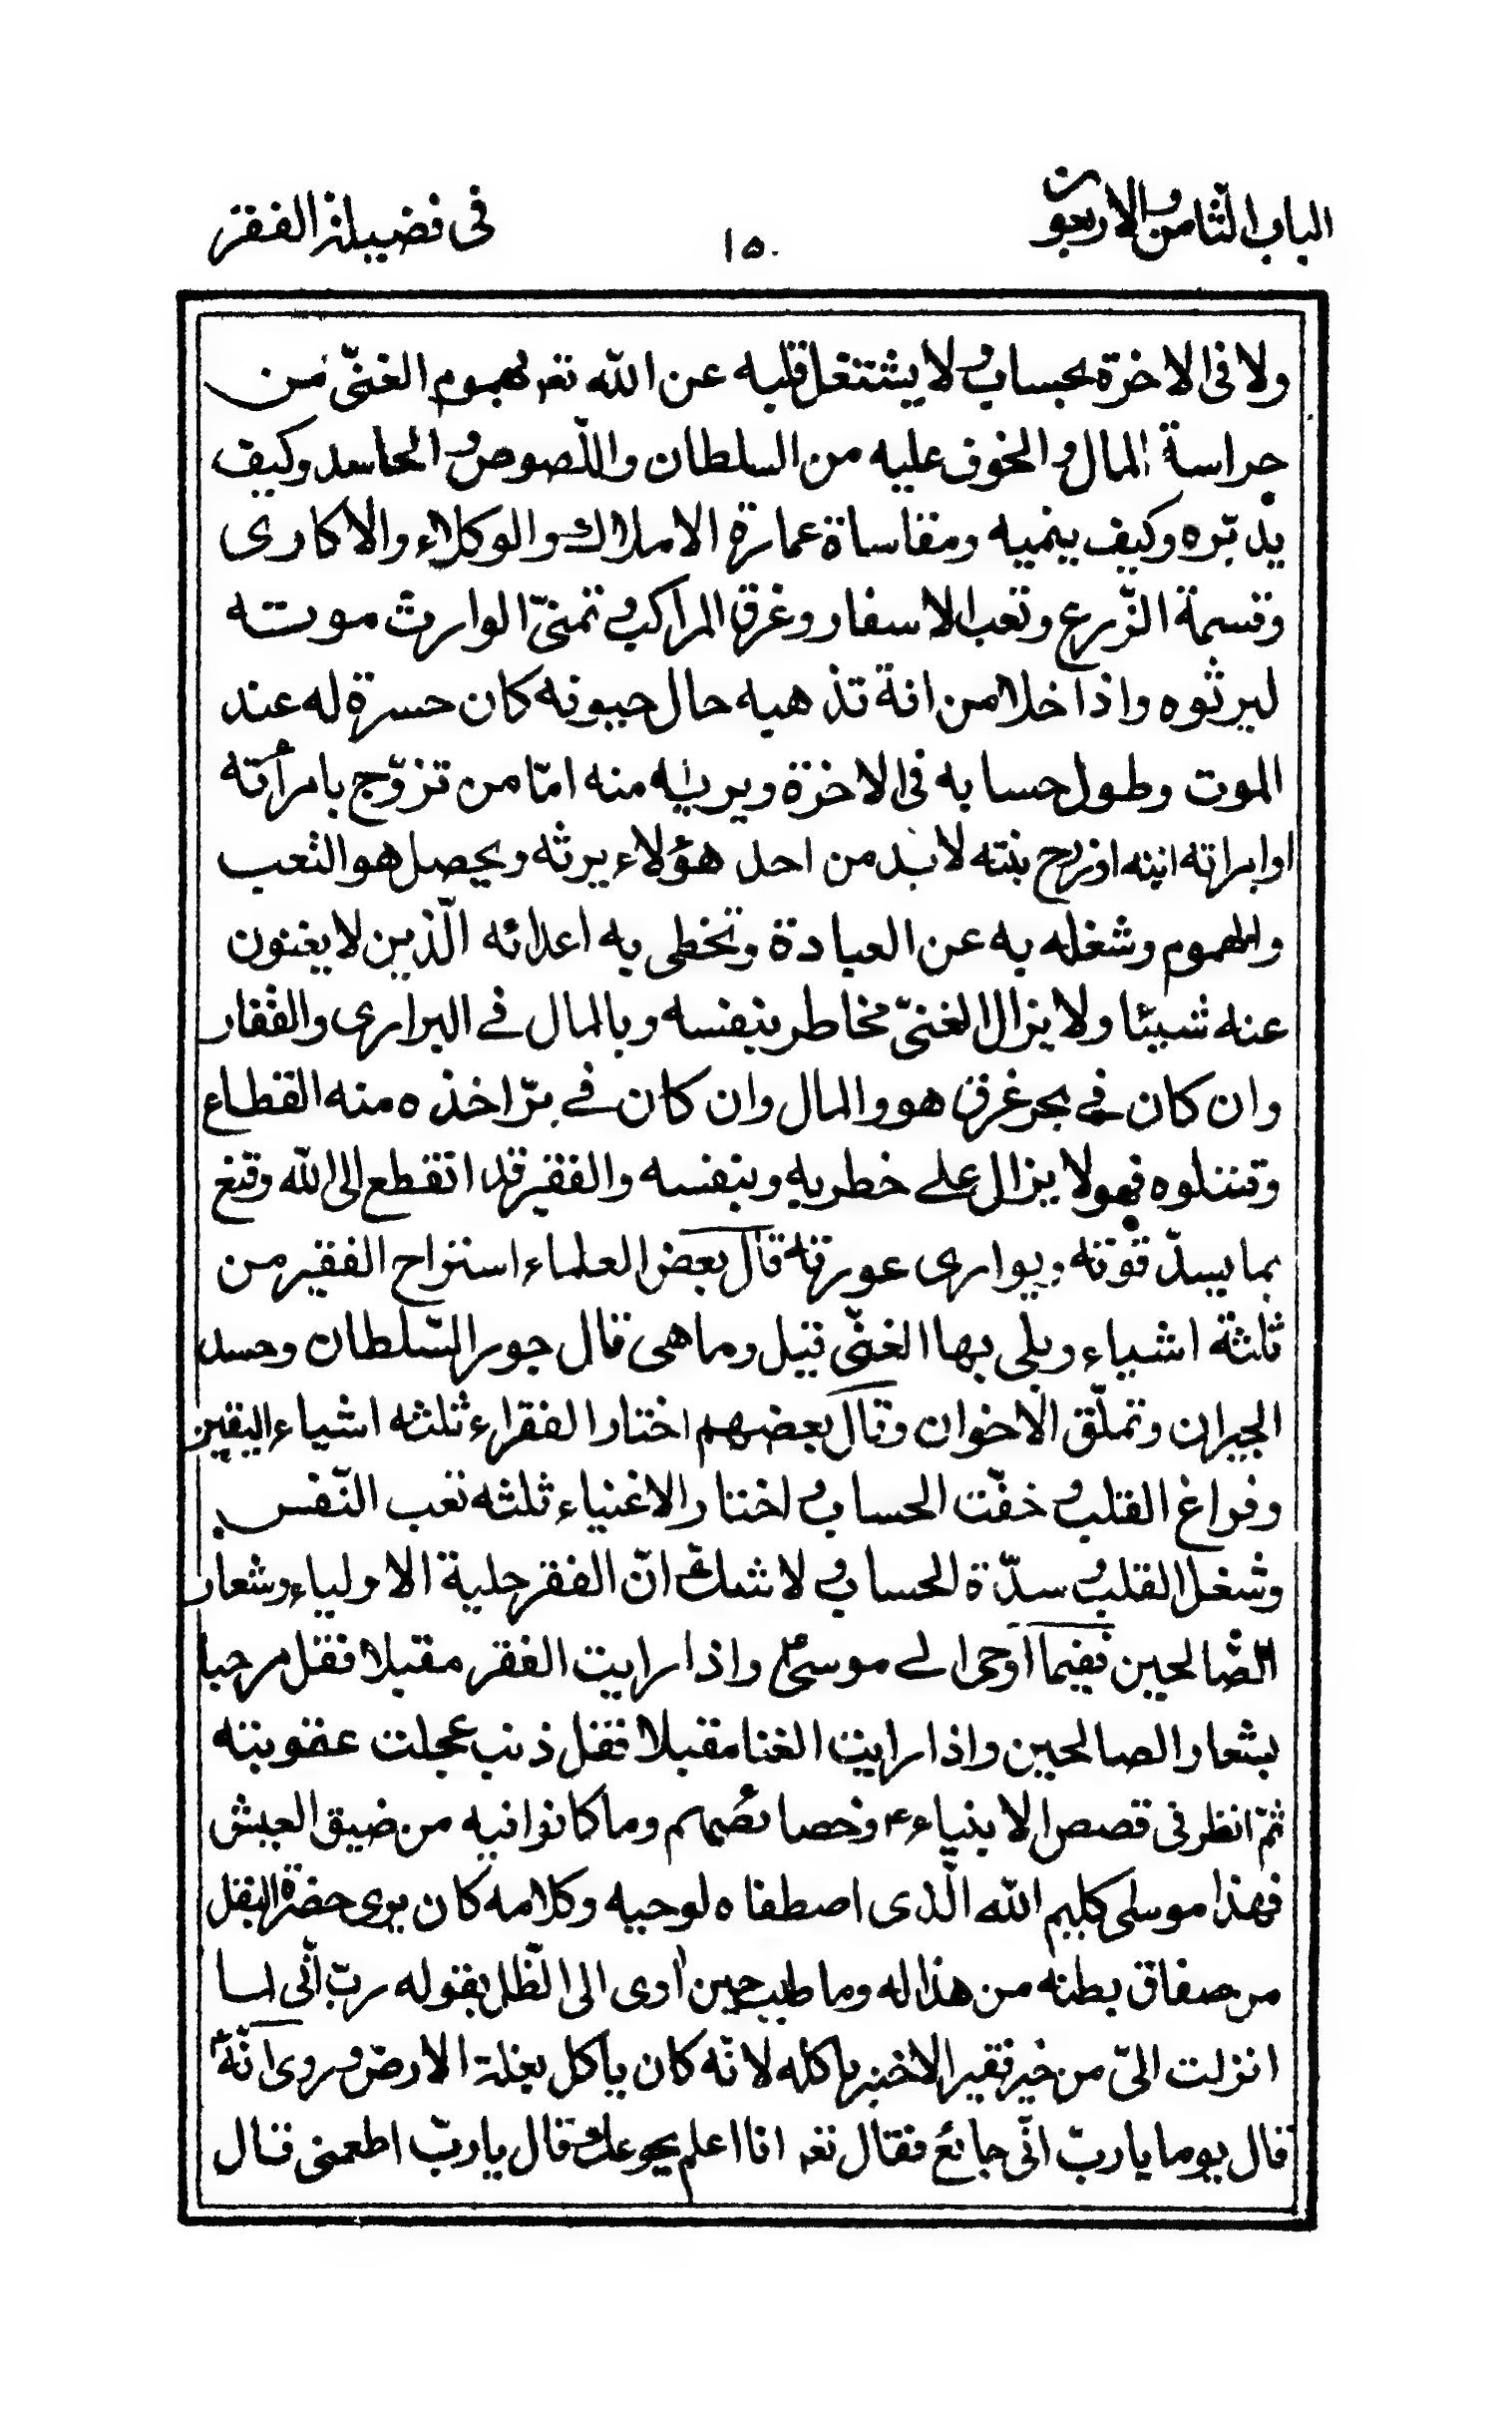 الباب الثامن والاربعون
١٥٠
فى فضيلة الفقر
ولا فى الاخرة بحساب ولا يشتغل قلبه عن الله تعر بهموم الغنىّ من
حراسة المال والخوف عليه من السلطان واللّصوص والحاسد وكيف
يدبّره وكيف ينميه ومقاساة عمارة الاملاك والوكلاء والاكارى
وقسمة الزّرع وتعب الاسفار وغرق المراكب وتمنىّ الوارث موته
ليرثوه واذا خلا من افة تذهبه حال حيوته كان حسرة له عند
الموت وطول حسابه فى الاخرة ويرثه منه امّا من تزوّج بامرأته
او امراته ابنه او زوج بنته لابد من احد هؤلاء يرثه ويحصل هو التعب
والهموم وشغله به عن العبادة وتخطى به اعدائه الّذين لا يغنون
عنه شيئا ولا يزال الغنىّ مخاطر بنفسه وبالمال فے البرارى والقفار
وان كان فے بحر غرق هو والمال وان كان فے برّ اخذه منه القطاع
وقتلوه فهو لا يزال علے خطر به وبنفسه والفقير قد انقطع الى الله وقنع
بما يسدّ قوته ويوارى عورته قال بعض العلماء استراح الفقير من
ثلثة اشياء وبلى بها الغنّى قيل وما هى قال جور السّلطان وحسد
الجيران وتملّق الاخوان وقال بعضهم اختار الفقراء ثلثه اشياء اليقين
وفراغ القلب وخفّت الحساب واختار الاغنياء ثلثه تعب النّفس
وشغل القلب وسدّة الحساب ولا شكّ انّ الفقر حلية الاولياء وشعار
الصّالحين ففيما اوحى الے موسىٰ واذا رايت الفقر مقبلا فقل مرحبا
بشعار الصالحين واذا رايت الغنا مقبلا فقل ذنب عجلت عقوبته
ثمّ انظر فى قصص الانبياءء وخصائصهم وما كانوا فيه من ضيق العيش
فهذا موسى كليم الله الّذى اصطفاه لوحيه وكلامه كان يرى حضرة البقل
من صفاق بطنه من هذاله وما طلب حين اوى الى الظّل بقوله ربّ انّى لما
انزلت الىّ من خير فقير الا خبز ياكله لانّه كان ياكل بقلة الارض وروى انّهٗ
قال يوما يا ربّ انّى جائع فقال تعر انا اعلم بجوعك قال يا ربّ اطعمنى قال